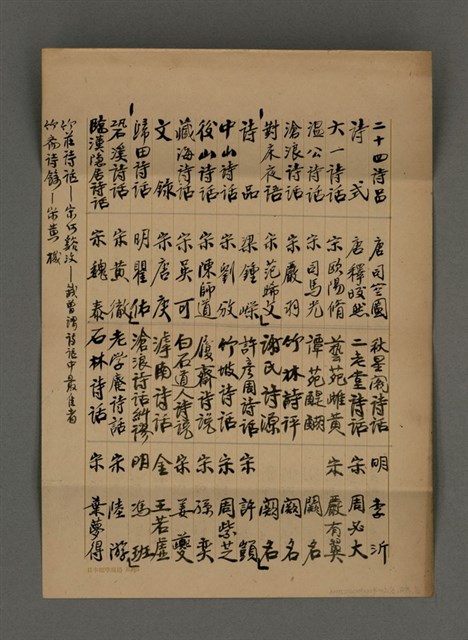 二十四詩品 唐 司空圖 秋星閣詩話 明 李沂
詩式 唐 釋皎然 二老堂詩話 宋 周必大
六一詩話 宋 歐陽脩 藝苑雌黃 宋 嚴有翼
溫公詩話 宋 司馬光 譚苑醍醐 闕名
滄浪詩話 宋 嚴羽 竹林詩評 闕名
對床夜語 宋 范晞文 謝氏詩源 闕名
詩品 梁 鍾嶸 許彥周詩話 宋 許顗
中山詩話 宋 劉攽 竹坡詩話 宋 周紫芝
後山詩話 宋 陳師道 履齋詩說 宋 孫奕
藏海詩話 宋 吳可 白石道人詩說 宋 姜夔
文錄 宋 唐庚 滹南詩話 金 王若虛
歸田詩話 明 瞿佑 滄浪詩話糾謬 明 馮班
䂬溪詩話 宋 黃徹 老學庵詩話 宋 陸游
臨漢隱居詩話 宋 魏泰 石林詩話 宋 葉夢得
竹莊詩話—宋何谿汶—錢曾謂詩話中最佳者
竹齋詩錄—宋黃機